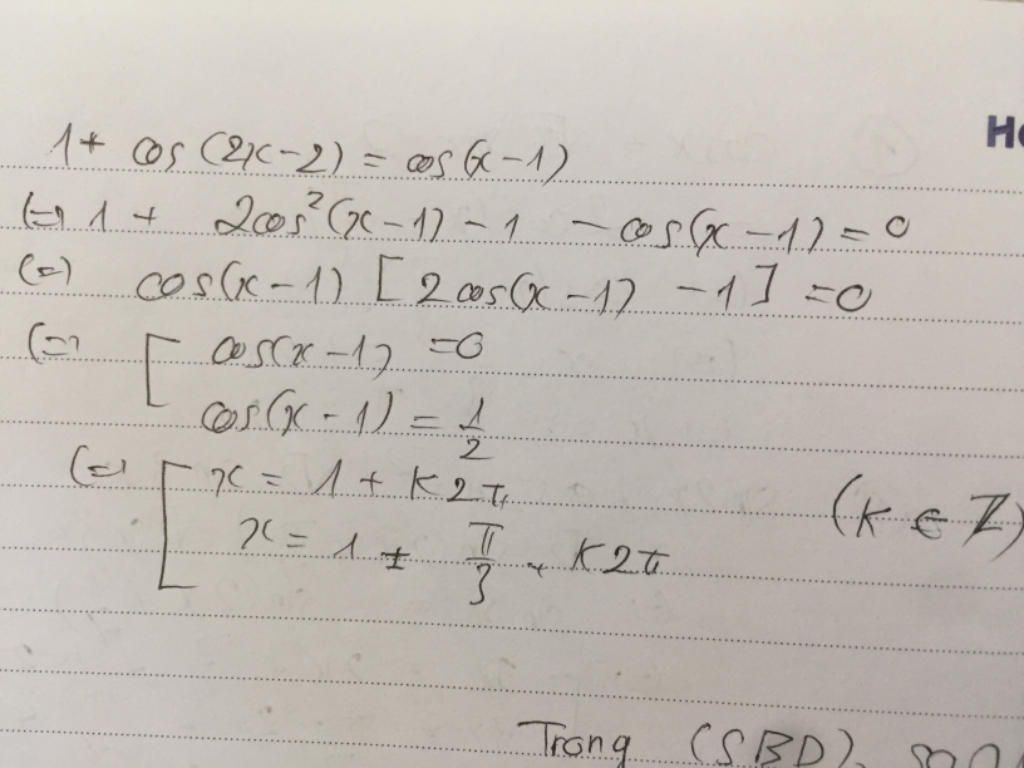 1 + cos (2x-2) = cos(x-1)
(=) 1 + 2cos²(x-1) - 1 - cos(x-1) = 0
(=) cos(x-1) [2cos(x-1) -1] = 0
(=) [ cos(x-1) = 0
cos(x-1) = 1/2
(=) [ x = 1 + K2π
x = 1 ± π/3 + K2π
(K ∈ Z)
Trang (SBD)